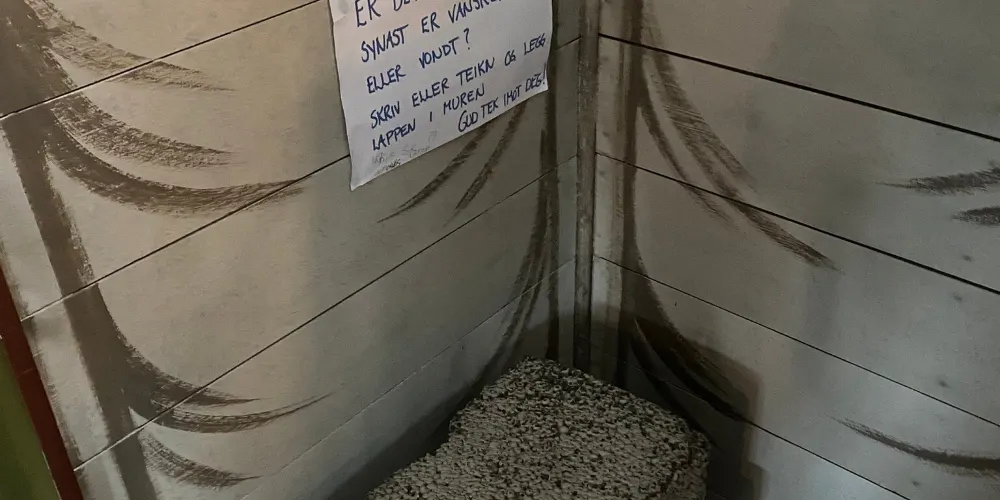 ER DE
SYNAST ER VANSKE
ELLER VONDT?
SKRIV ELLER TEIKN OG LEGG
LAPPEN I MUREN
GUD TEK IMOT DEG!